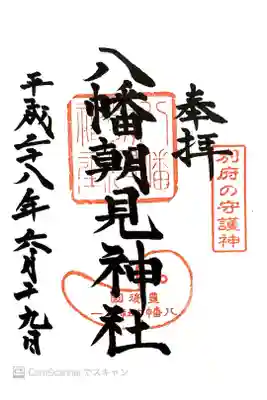 奉拝
別府の守護神
八幡朝見神社
平成二十八年六月二十九日
CamScanner でスキャン